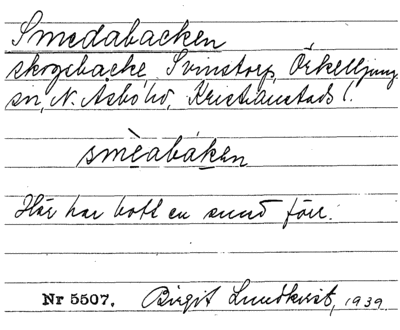 Smedabacken
skogsbacke, Svinstorp, Örkelljunga
sn, N. Åsbo hd, Kristianstads l.
smèabáken
Här har bott en smed förr.
Nr 5507. Birgit Lundkvist, 1939